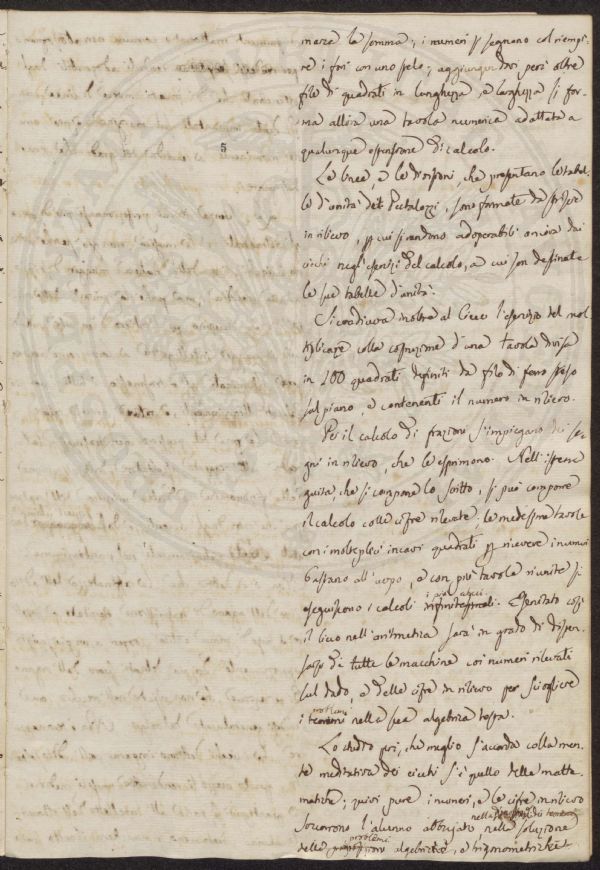 mare la somma; i numeri p segnano col riempi-
re i fori con uno spelo, aggiungendosi però oltre
file di quadrati in lunghezza, e larghezza si for-
ma allora una tavola numerica adattata a
qualunque espensione di calcolo.
Le linee, e le divisioni, che presentano le tabel-
le d'unità del Pestalozzi, sono formate da strisce
in rilievo, p cui si rendono adoperabili ancora dai
ciechi negli esercizi del calcolo, a cui son destinate
le sue tabelle d'unità.
Si coadiuva inoltre al Cieco l'esercizio del mol-
tiplicare colla costruzione d'una tavola divisa
in 100 quadrati definiti da filo di ferro steso
sul piano, e contenenti il numero in rilievo.
Per il calcolo di frazioni s'impiegano dei se-
gni in rilievo, che le esprimono. Nell'istessa
guisa, che si compone lo scritto, si può comporre
il calcolo colle cifre rilevate: le medesime tavole
con i molteplici incavi quadrati p ricevere i numeri
bastano all'uopo, e con più tavole riunite si
eseguiscono i calcoli. Esercitato così
il cieco nell'aritmetica sarà in grado di dispen-
sarsi da tutte le macchine coi numeri rilevati
sul dado, e delle cifre in rilievo per sciogliere
problemi
i temi nella sua algebrica testa.
Lo studio poi, che meglio s'accorda colla men-
te meditativa dei ciechi si è quello della matte-
matiche; quivi pure i numeri, e le cifre in rilievo
nella dei teoremi
soccorrono l'alunno attorniato, nella soluzione
problemi
delle algebriche, e trigonometriche
5